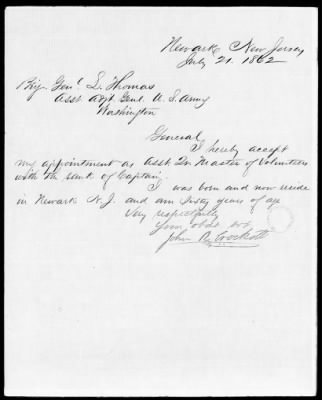 Newark New Jersey
July 21. 1862
Brig. Genl. L. Thomas
Asst Adjt. Genl. U. S. Army
Washington
General,
I hereby accept
my appointment as Asst. Qr. Master of Volunteers
with the rank of Captain.
I was born and now reside
in Newark N. J. and am years of age
Very respectfully
Your obdt. svt
John Crockett